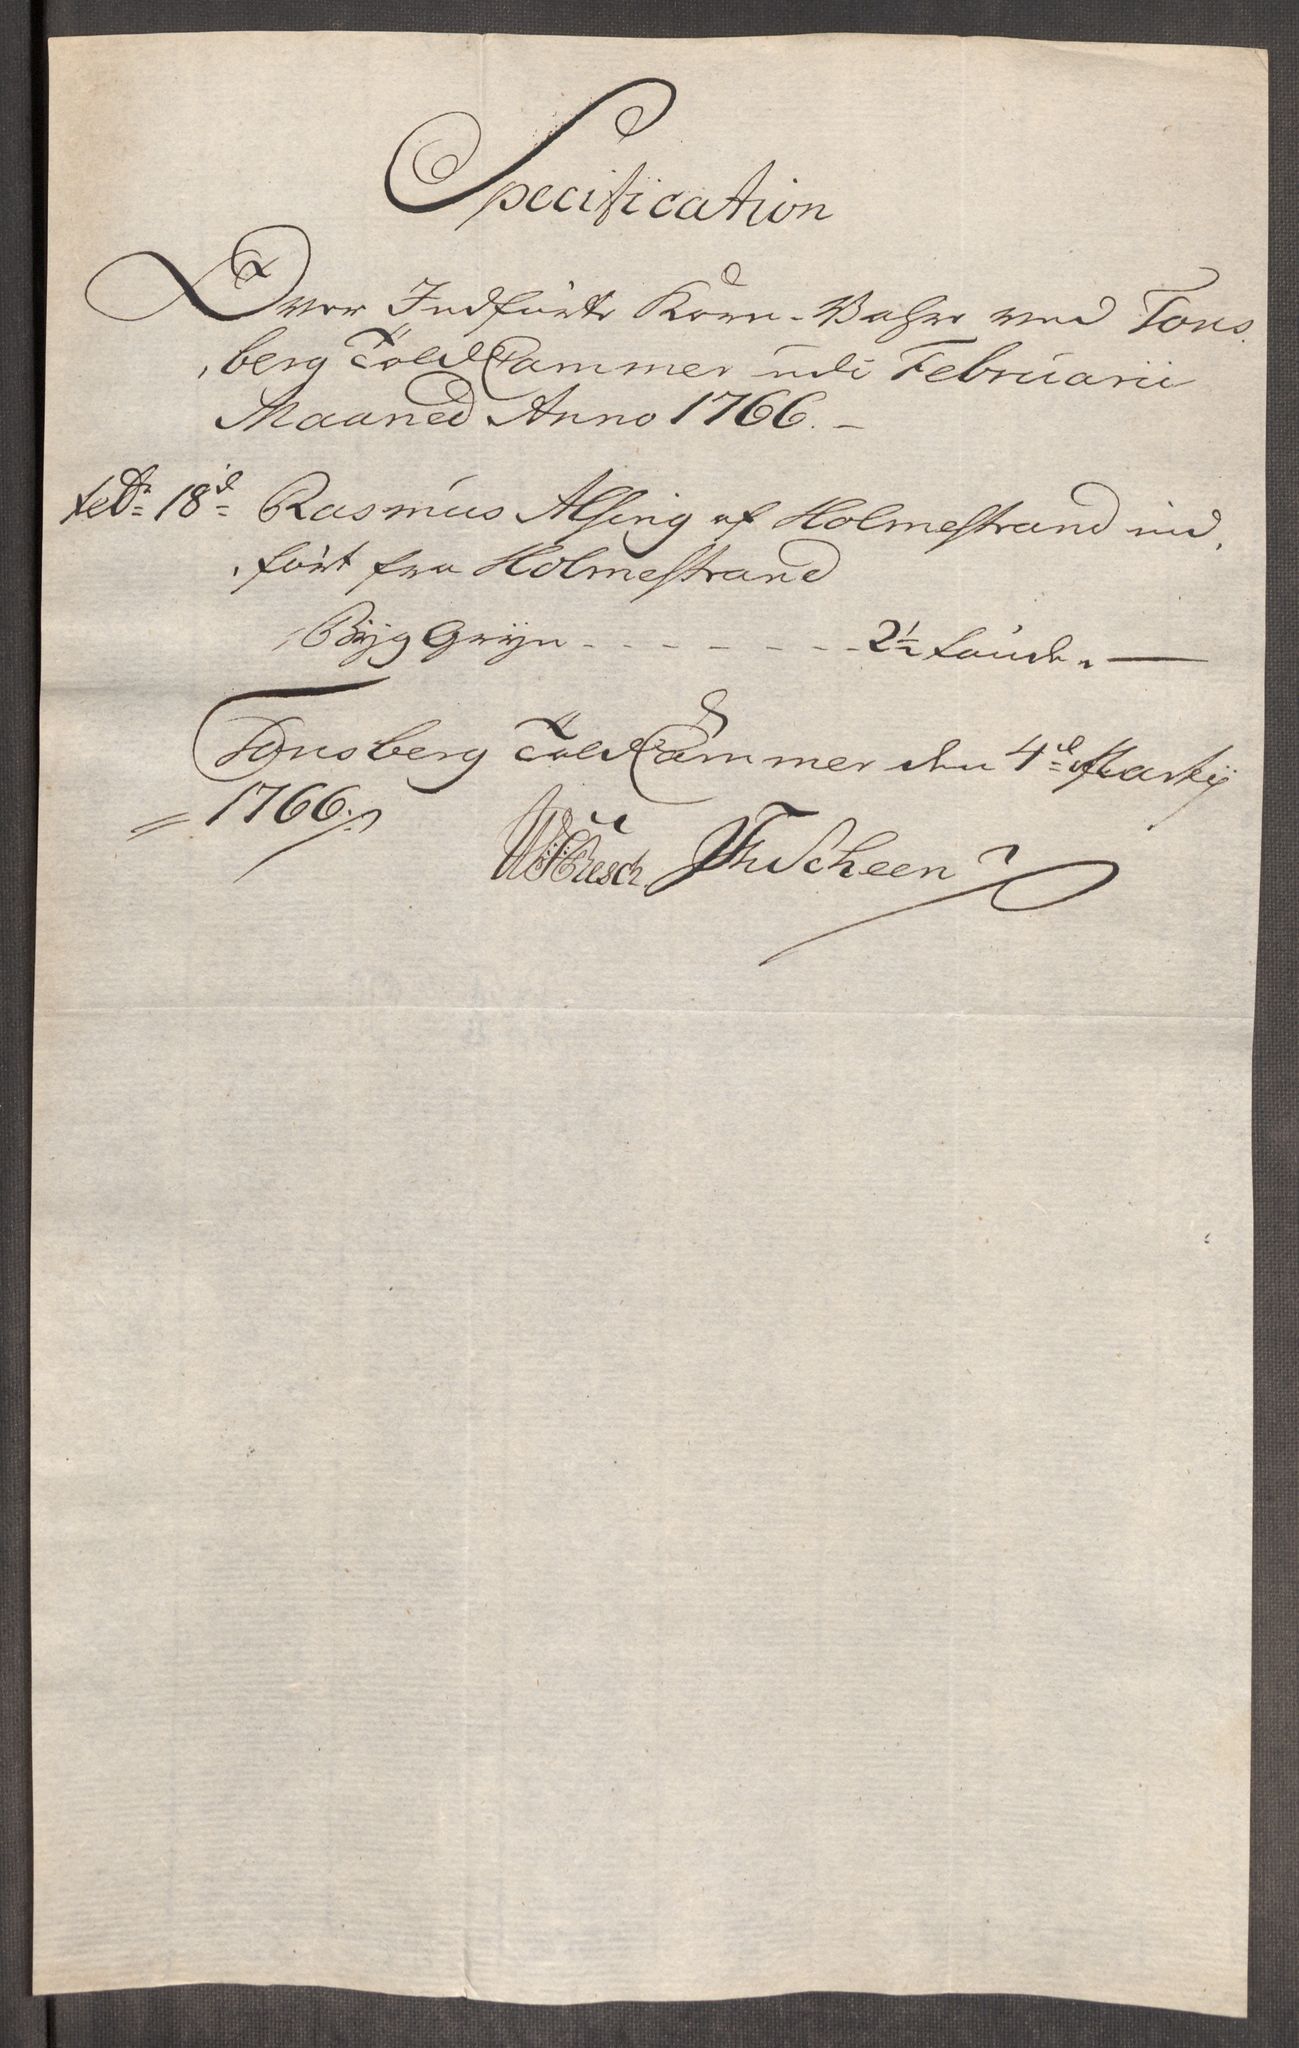 Specification
Over Indførte Korn-Vahre ved Tons-
berg Told Cammer udi Februarii
Maaned Anno 1766.-
febr: 18d: Rasmus Alsing af Holmestrand ind-
ført fra Holmestrand
Byg Gryn - - - - - - - - 2½ tønde. -
Tonsberg Told Cammer den 4d: Martij
1766.
Scheen